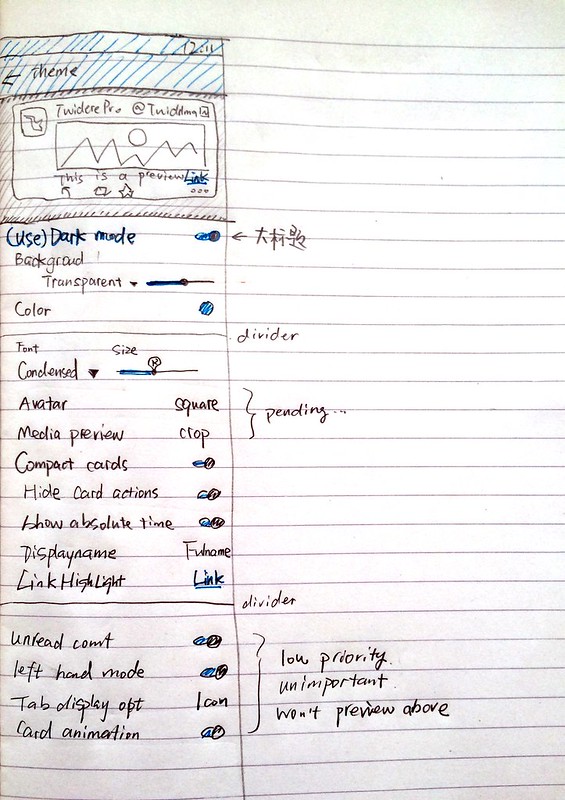 12:11
← theme
Twidere Pro @Twiddma
This is a preview Link
(Use) Dark mode ← 大标题
Backgroud
Transparent
Color
divider
Font Size
Condensed
Avatar square
pending...
Media preview crop
Compact cards
Hide Card actions
Show absolute time
Displayname Fulname
Link HighLight Link
divider
unread count
left hand mode
low priority.
unimportant
Tab display opt Icon
won't preview above
Card animation